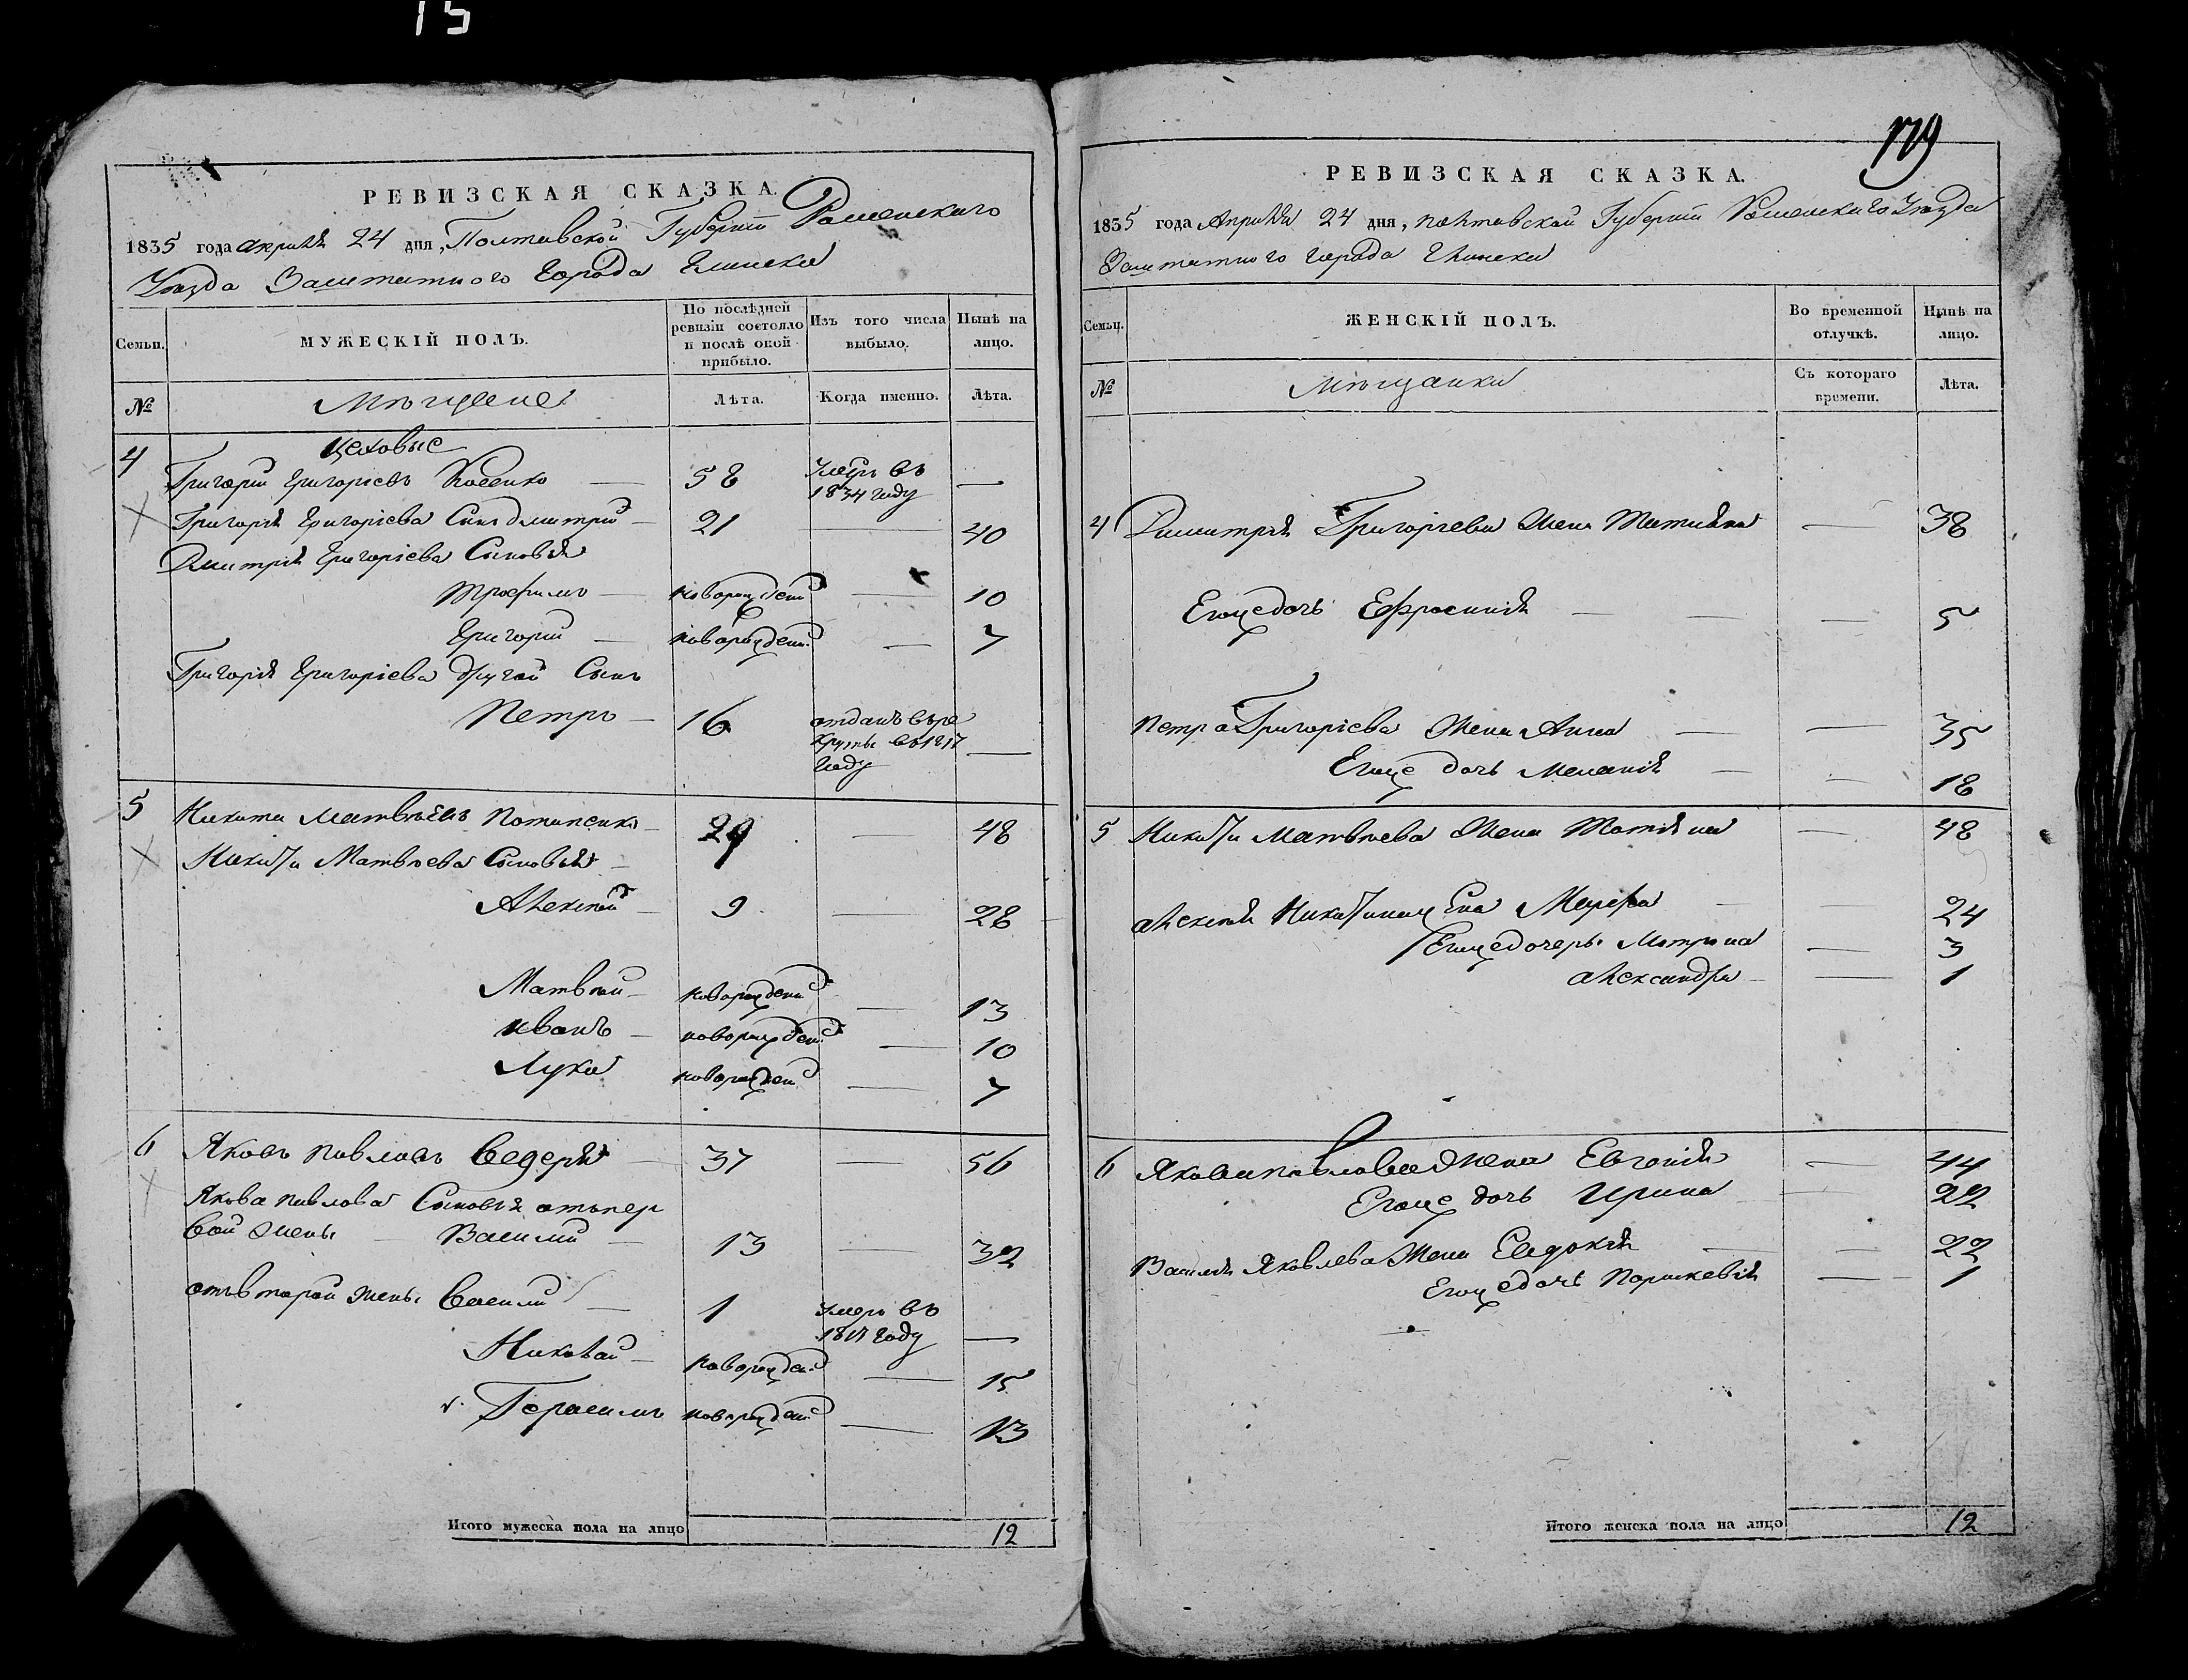 15
РЕВИЗСКАЯ СКАЗКА.
1835 года апрѣля 24 дня, Полтавской Губерніи Роменского
Уѣзда Заштатного города Глинска
Семьи.
МУЖЕСКІЙ ПОЛЪ.
По послѣдней ревизіи состояло и послѣ оной прибыло.
Изъ того числа выбыло.
Нынѣ на лицо.
№
Мѣщане
Лѣта.
Когда именно.
Лѣта.
цеховые
4 Григорій Григоріевъ 58 Умеръ въ 1834 году —
Григорія Григоріева Сынъ Дмитрій 21 — 40
Дмитрія Григоріева Сыновья
Трофимъ — новорожденъ — 10
Григорій — новорожденъ — 7
Григорія Григоріева другой Сынъ
Петръ — 16 отданъ въ ре
круты въ 1817
году —
5 Никита Матвѣевъ Потапенко — 29 — 48
Никиты Матвѣева Сыновья —
Алексѣй — 9 — 28
Матвѣй — новорожденъ — 13
Иванъ — новорожденъ — 10
Лука новорожденъ — 7
6 Яковъ Павловъ Ведеря — 37 — 56
Якова Павлова Сыновья отъ пер
вой жены — Василій — 13 — 32
отъ второй жены Василій — 1 умеръ въ
году —
Николай — новорожденъ — 15
Герасимъ новорожденъ — 13
Итого мужеска пола на лицо 12
179
РЕВИЗСКАЯ СКАЗКА.
1835 года Апрѣля 24 дня, Полтавской Губерніи Роменского Уѣзда
Заштатного города Глинска
Семьи.
ЖЕНСКІЙ ПОЛЪ.
Во временной отлучкѣ.
Нынѣ на лицо.
№
Мѣщанки
Съ котораго времени.
Лѣта.
4 Димитрія Григоріева Жена Татіяна — 38
Егоже дочь Ефросинія — — 5
Петра Григоріева Жена Анна — — 35
Егоже дочь Меланія — — 18
5 Никиты Матвѣева Жена Татіяна — 48
Алексѣя Никитина жена Марфа — — 24
Егоже дочери Мотрона — 3
Александра — — 1
6 Якова Павлова Жена Евгенія — 44
Егоже дочь Ирина — 22
Василія Яковлева Жена Евдокія — — 22
Егоже дочь Параскевія — 1
Итого женска пола на лицо 12